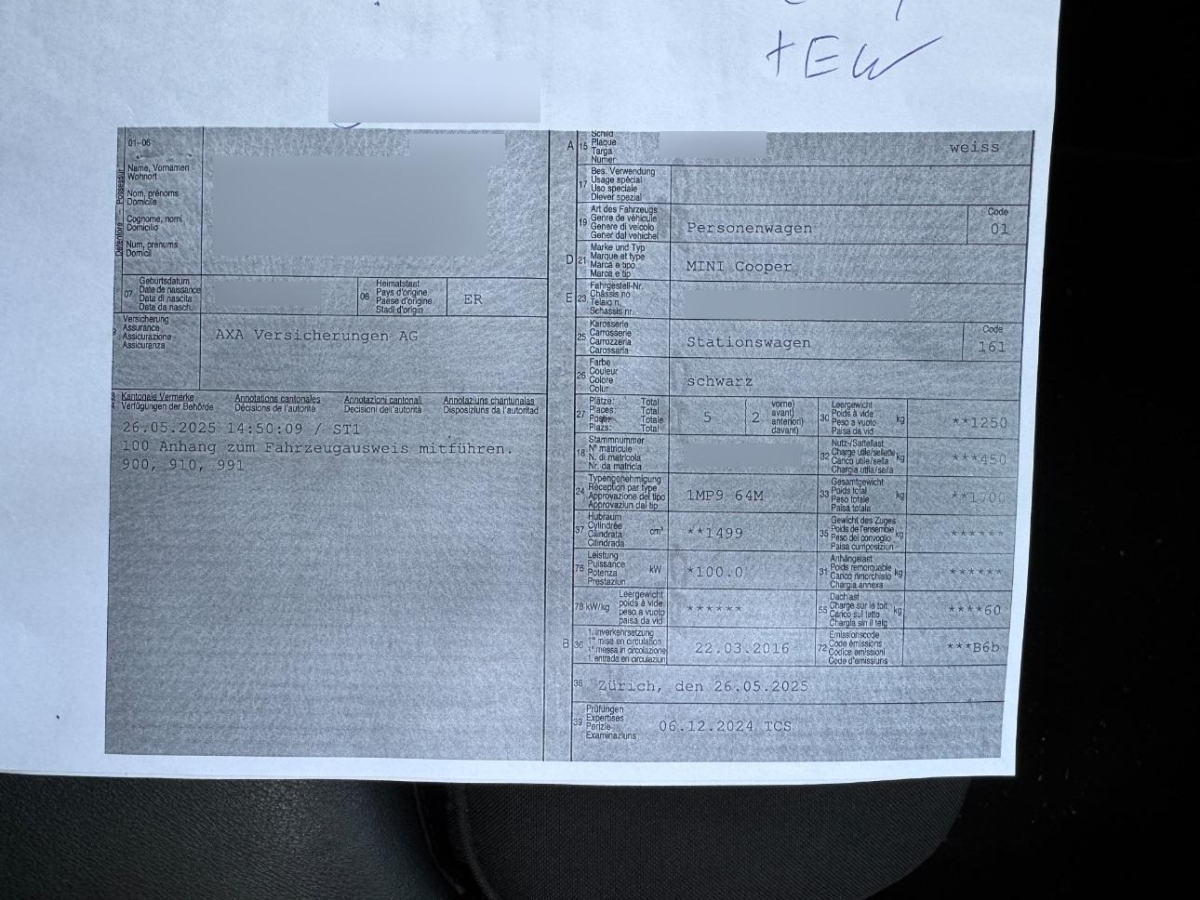 +EW
01-06
Name, Vornamen
Wohnort
Nom, prénoms
Domicile
Cognome, nomi
Domicilio
Num, prenums
Domicil
07
Geburtsdatum
Date de naissance
Data di nascita
Data da nasch.
08
Heimatstaat
Pays d'origine
Paese d'origine
Stadi d'origin
ER
Versicherung
Assurance
Assicurazione
Assicuranza
AXA Versicherungen AG
Kantonale Vermerke Annotations cantonales Annotazioni cantonali Annotaziuns chantunalas
Verfügungen der Behörde Décisions de l'autorité Decisioni dell'autorità Disposiziuns da l'autoritad
26.05.2025 14:50:09 / ST1
100 Anhang zum Fahrzeugausweis mitführen.
900, 910, 991
A 15
Schild
Plaque
Targa
Numer
weiss
17
Bes. Verwendung
Usage spécial
Uso speciale
Diever spezial
19
Art des Fahrzeugs
Genre de véhicule
Genere di veicolo
Gener dal vehichel
Personenwagen
Code
01
D 21
Marke und Typ
Marque et type
Marca e tipo
Marca e tip
MINI Cooper
E 23
Fahrgestell-Nr.
Châssis no
Telaio n.
Schassis nr.
25
Karosserie
Carrosserie
Carrozzeria
Carossaria
Stationswagen
Code
161
26
Farbe
Couleur
Colore
Colur
schwarz
27
Plätze: Total
Places: Total
Posti: Totale
Plazs: Total
5
2
vorne)
avant)
anteriori)
davant)
30
Leergewicht
Poids à vide
Peso a vuoto
Paisa da vid
kg
**1250
18
Stammnummer
N° matricule
N. di matricola
Nr. da matricla
32
Nutz-/Sattellast
Charge utile/sellette
Carico utile/sella
Chargia utila/sella
kg
***450
24
Typengenehmigung
Réception par type
Approvazione del tipo
Approvaziun dal tip
1MP9 64M
33
Gesamtgewicht
Poids total
Peso totale
Paisa totala
kg
**1700
37
Hubraum
Cylindrée
Cilindrata
Cilindrada
cm³
**1499
35
Gewicht des Zuges
Poids de l'ensemble
Peso del convoglio
Paisa cumposiziun
kg
******
76
Leistung
Puissance
Potenza
Prestaziun
kW
*100.0
31
Anhängelast
Poids remorquable
Carico rimorchiato
Chargia annexa
kg
******
78 kW/kg
Leergewicht
poids à vide
peso a vuoto
paisa da vid
******
55
Dachlast
Charge sur le toit
Carico sul tetto
Chargia sin il tetg
kg
****60
B 36
1. Inverkehrsetzung
1re mise en circulation
1a messa in circolazione
1. entrada en circulaziun
22.03.2016
72
Emissionscode
Code émissions
Codice emissioni
Code d'emissiuns
***B6b
38
Zürich, den 26.05.2025
39
Prüfungen
Expertises
Perizie
Examinaziuns
06.12.2024 TCS